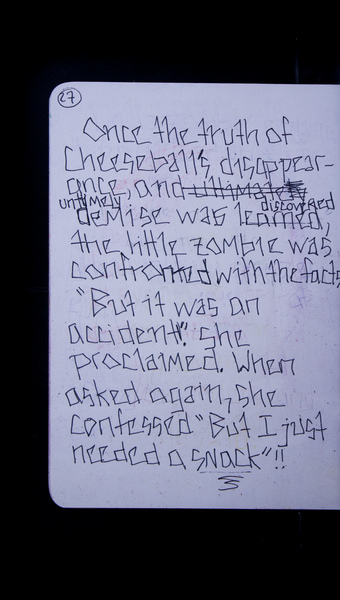 27
Once the truth of
Cheeseball's disappear-
ance, and ultimately
untimely discovered
demise was learned,
the little zombie was
confronted with the facts
"But it was an
accident!" She
proclaimed. When
asked again, she
confessed "But I just
needed a snack"!!